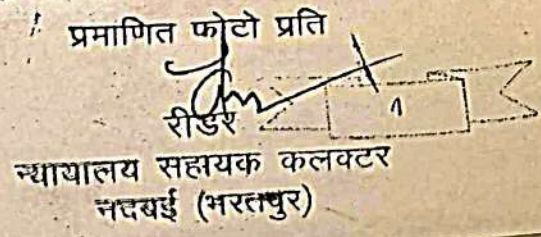 प्रमाणित फोटो प्रति
1
रीडर
न्यायालय सहायक कलक्टर
नदबई (भरतपुर)